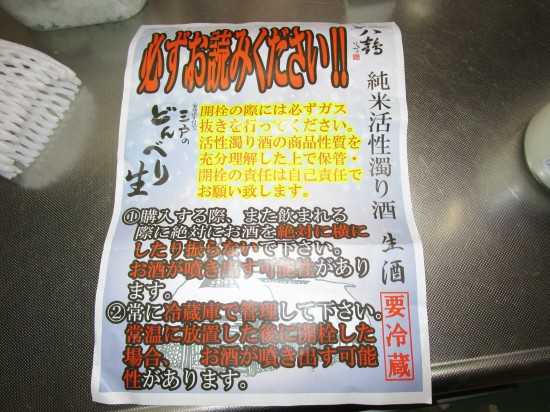 必ずお読みください!!
八鶴
純米活性濁り酒 生酒
要冷蔵
三戸の
どんべり
生
開栓の際には必ずガス
抜きを行ってください。
活性濁り酒の商品性質を
充分理解した上で保管・
開栓の責任は自己責任で
お願い致します。
①購入する際、また飲まれる
際に絶対にお酒を絶対に横に
したり振らないで下さい。
お酒が噴き出す可能性があり
ます。
②常に冷蔵庫で管理して下さい。
常温に放置した後に開栓した
場合、 お酒が噴き出す可能
性があります。